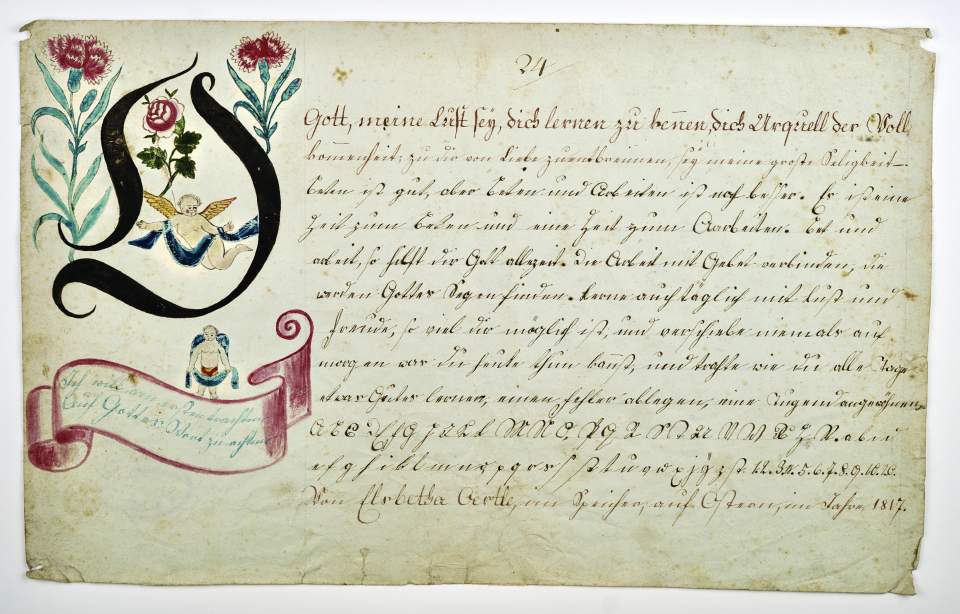 24
O
Gott, meine Lust sey, dich lernen zu kennen, dich Urquell der Voll
kommenheit; zu dir von Liebe zuentbrennen, sey meine groste Seligkeit
beten ist gut, aber beten und Arbeiten ist noch besser. Es ist eine
Zeit zum Beten und eine Zeit zum Aarbeiten. bet und
arbeit, so hilft dir Gott allezeit. Die Arbeit mit Gebet verbinden, die
werden Gottes Segen finden. Lerne auch täglich mit Lust und
Freude, so viel dir möglich ist, und verschiebe niemals auf
morgen was du heute thun kanst, und trachte wie du alle Tage
etwas Gutes lernen, einen Fehler ablegen, eine Tugend angewöhnen
Ich will
Auf Gottes Wort zu achten
a b c d
e f g h i k l m n o p q r s ſ st t u v w x y z 12. 34. 5. 6. 7. 8. 9. 10.
Von Elsbetha Oertle, im Speicher, auf Ostern, im Jahre 1817.